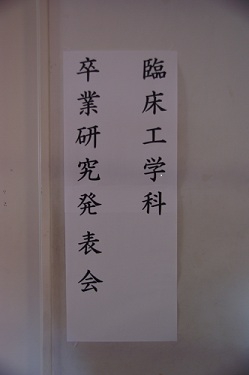 臨床工学科
卒業研究発表会